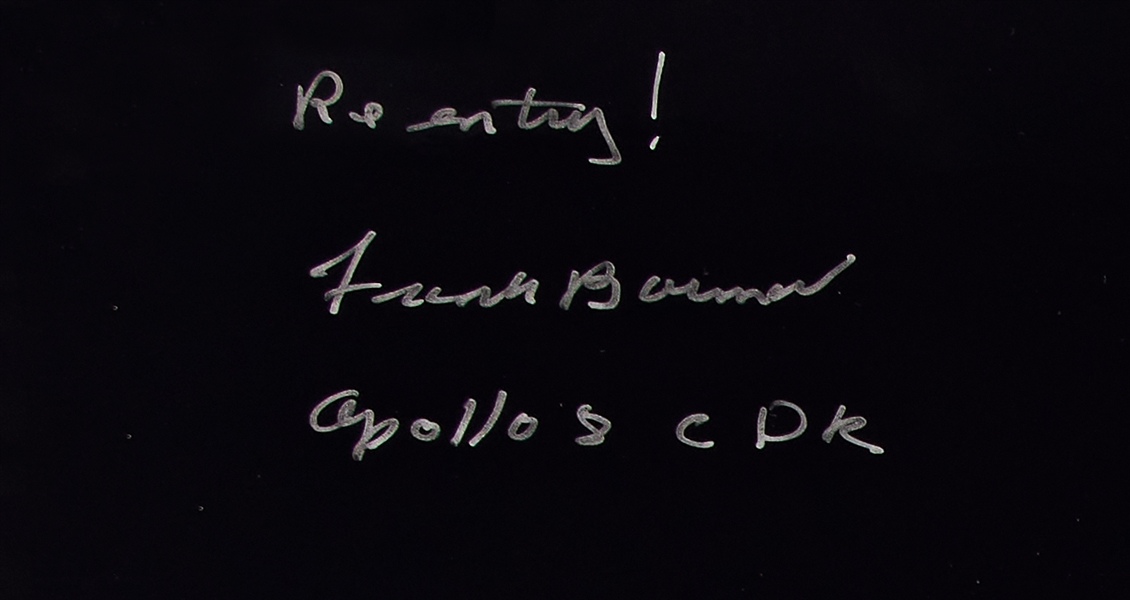 Re entry!
Frank Borman
Apollo 8 CDR